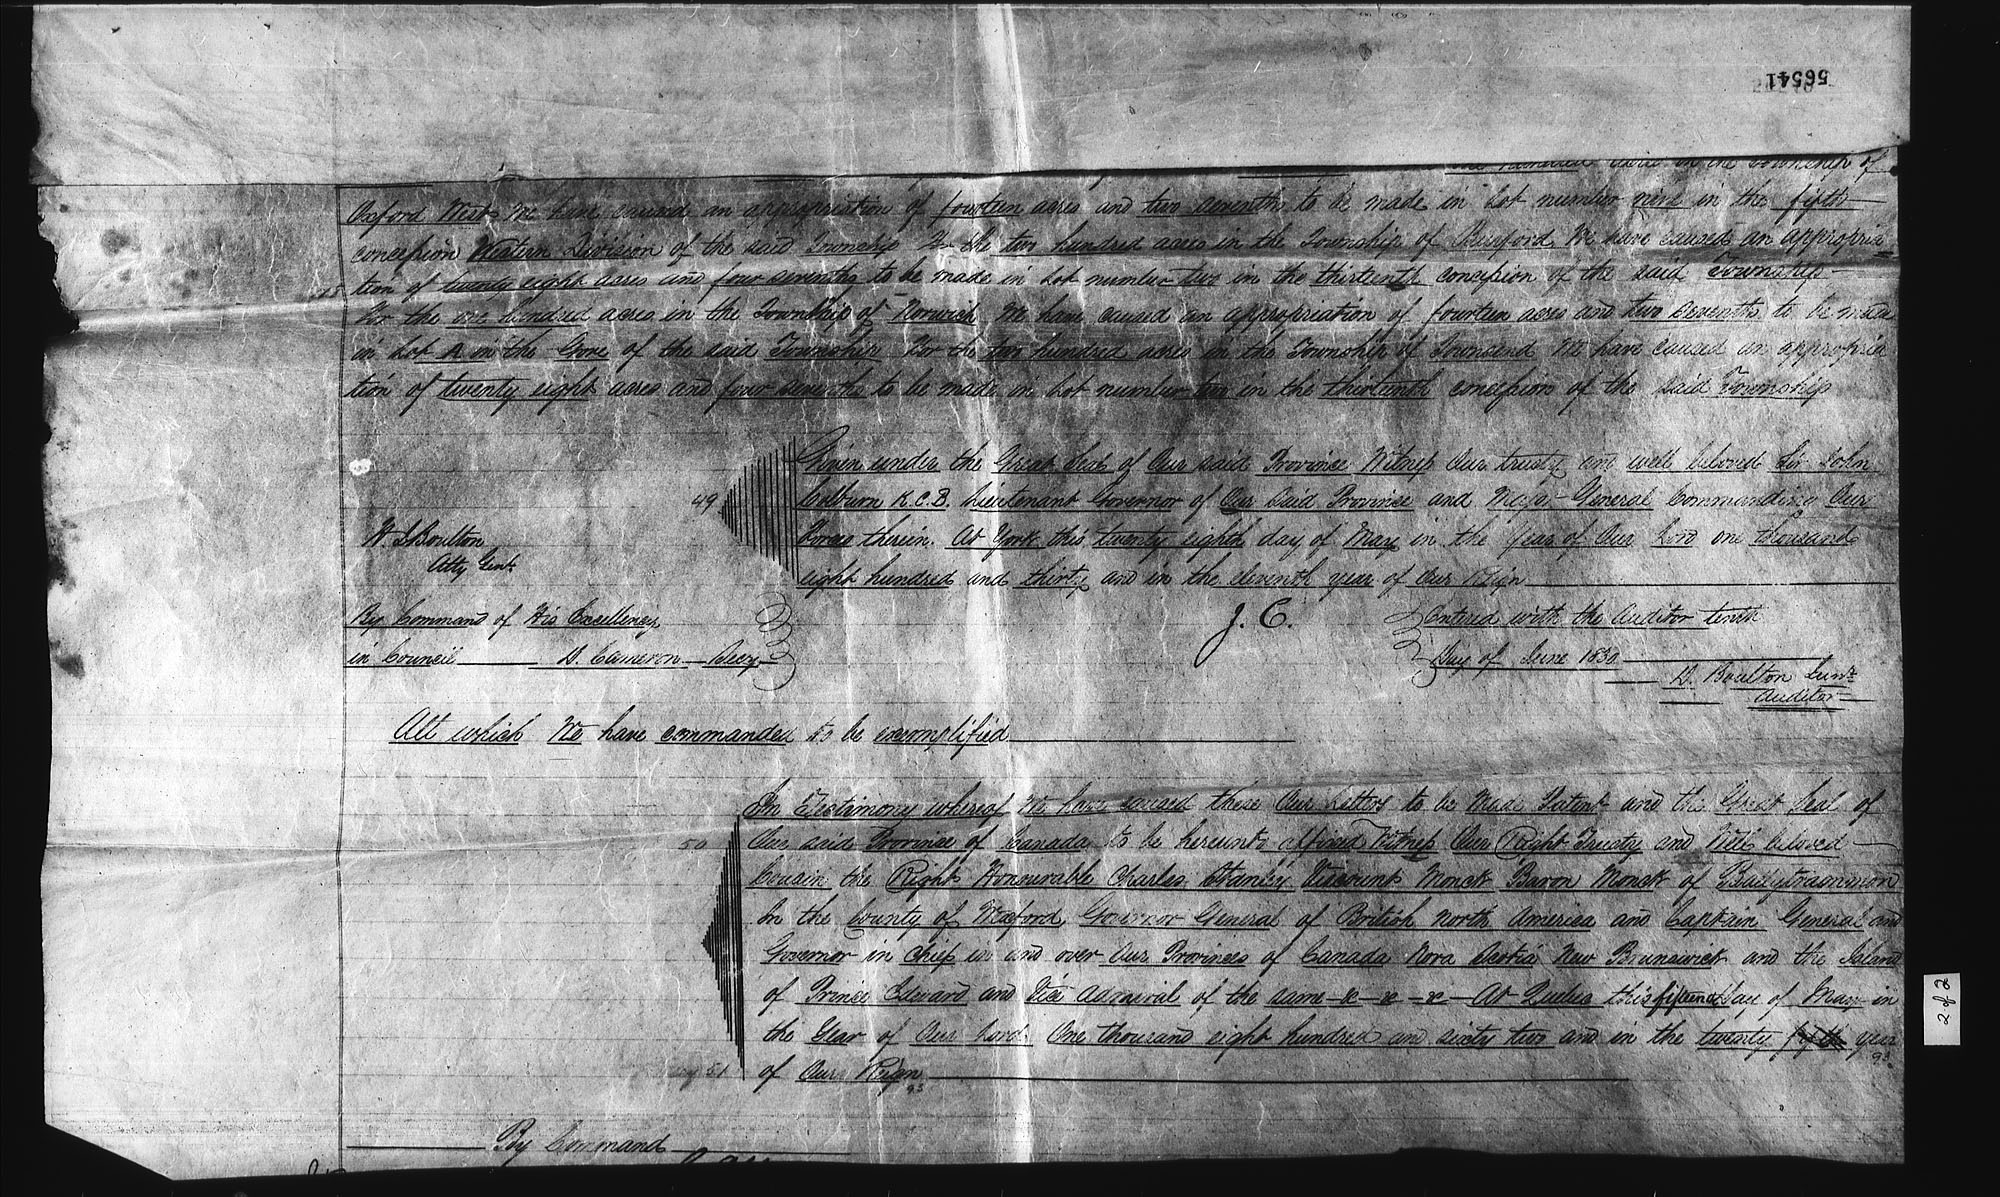 56541
one hundred acres in the Township of
Oxford West We have caused an appropriation of fourteen acres and two sevenths to be made in Lot number nine in the fifth
concession Western Division of the said Township For the two hundred acres in the Township of Burford We have caused an appropria
tion of twenty eight acres and four sevenths to be made in Lot number two in the thirteenth concession of the said Township
For the one hundred acres in the Township of Norwich We have caused an appropriation of fourteen acres and two sevenths to be made
in Lot A in the Gore of the said Township For the two hundred acres in the Township of Townsend We have caused an appropria
tion of twenty eight acres and four sevenths to be made in Lot number two in the thirteenth concession of the said Township
Given under the Great Seal of Our said Province Witness Our trusty and well beloved Sir John
49 Colburn K.C.B. Lieutenant Governor of Our said Province and Major General Commanding Our
Forces therein. At York this twenty eighth day of May in the Year of Our Lord one thousand
eight hundred and thirty and in the eleventh year of Our Reign
Boulton
Atty Genl.
By Command of His Excellency
in Council D. Cameron Secy
J. C.
Entered with the Auditor tenth
Day of June 1830
D. Boulton Junr.
Auditor
All which We have commanded to be exemplified
In Testimony whereof We have caused these Our Letters to be Made Patent and the Great Seal of
50 Our said Province of Canada to be hereunto affixed Witness Our Right Trusty and Well beloved
Cousin the Right Honourable Charles Stanley Viscount Monck Baron Monck of Ballytrammon
In the County of Wexford Governor General of British North America and Captain General and
Governor in Chief in and over Our Provinces of Canada Nova Scotia New Brunswick and the Island
of Prince Edward and Vice Admiral of the same &c &c &c At Quebec this fifteenth day of May in
the Year of Our Lord One thousand eight hundred and sixty two and in the twenty fifth year
51 of Our Reign
By Command
2 of 2